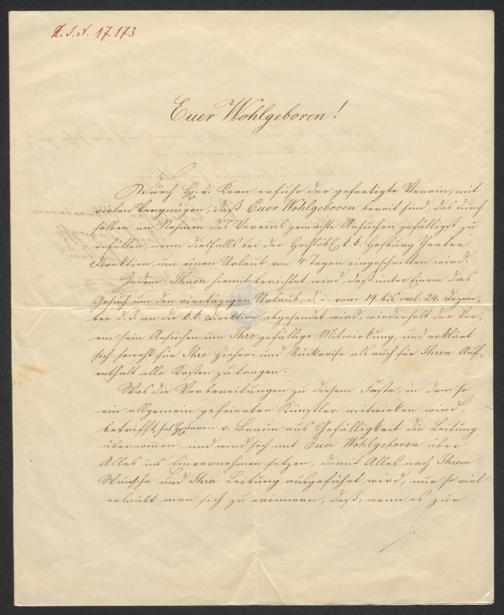 H. I. N. 17173
Euer Wohlgeboren!
Durch H. v. Korn erfuhr der gefertigte Verein, mit
vielem Vergnügen, daß Euer Wohlgeboren bereit sind, das durch
selben im Namen des Vereins gemachte Ansuchen gefälligst zu
erfüllen, wenn dießfalls bei der k. k. Hofburg Theater
Direktion um einen Urlaub von 4 Tagen eingeschritten wird.
Indem Ihnen hiemit berichtet wird, daß unter Einem das
Gesuch um den viertägigen Urlaub, d. i. vom 19. bis 24. Dezem
ber d. J. an die k. k. Direktion abgesendet wird, wiederholt der Ver
ein sein Ansuchen um Ihre gefällige Mitwirkung, und erklärt
sich sowohl für Ihre Hieher- und Rückreise als auch für Ihren Auf
enthalt alle Kosten zu tragen.
Was die Vorbereitungen zu diesem Feste, in dem so
ein allgemein gefeierter Künstler mitwirken wird,
betrifft, hat v. aus Gefälligkeit die Leitung
übernommen, und wird sich mit Euer Wohlgeboren über
Alles ins Einvernehmen setzen, damit Alles nach Ihrem
Wunsche und Ihrer Leitung ausgeführt werde, nur so viel
erlaubt man sich zu erinnern, daß, wenn es zur